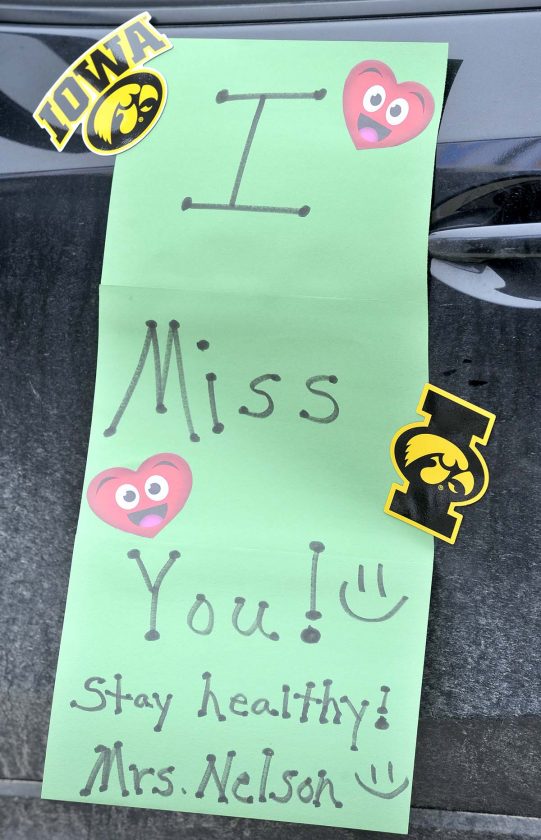 IOWA
I
Miss
You!
Stay healthy!
Mrs. Nelson